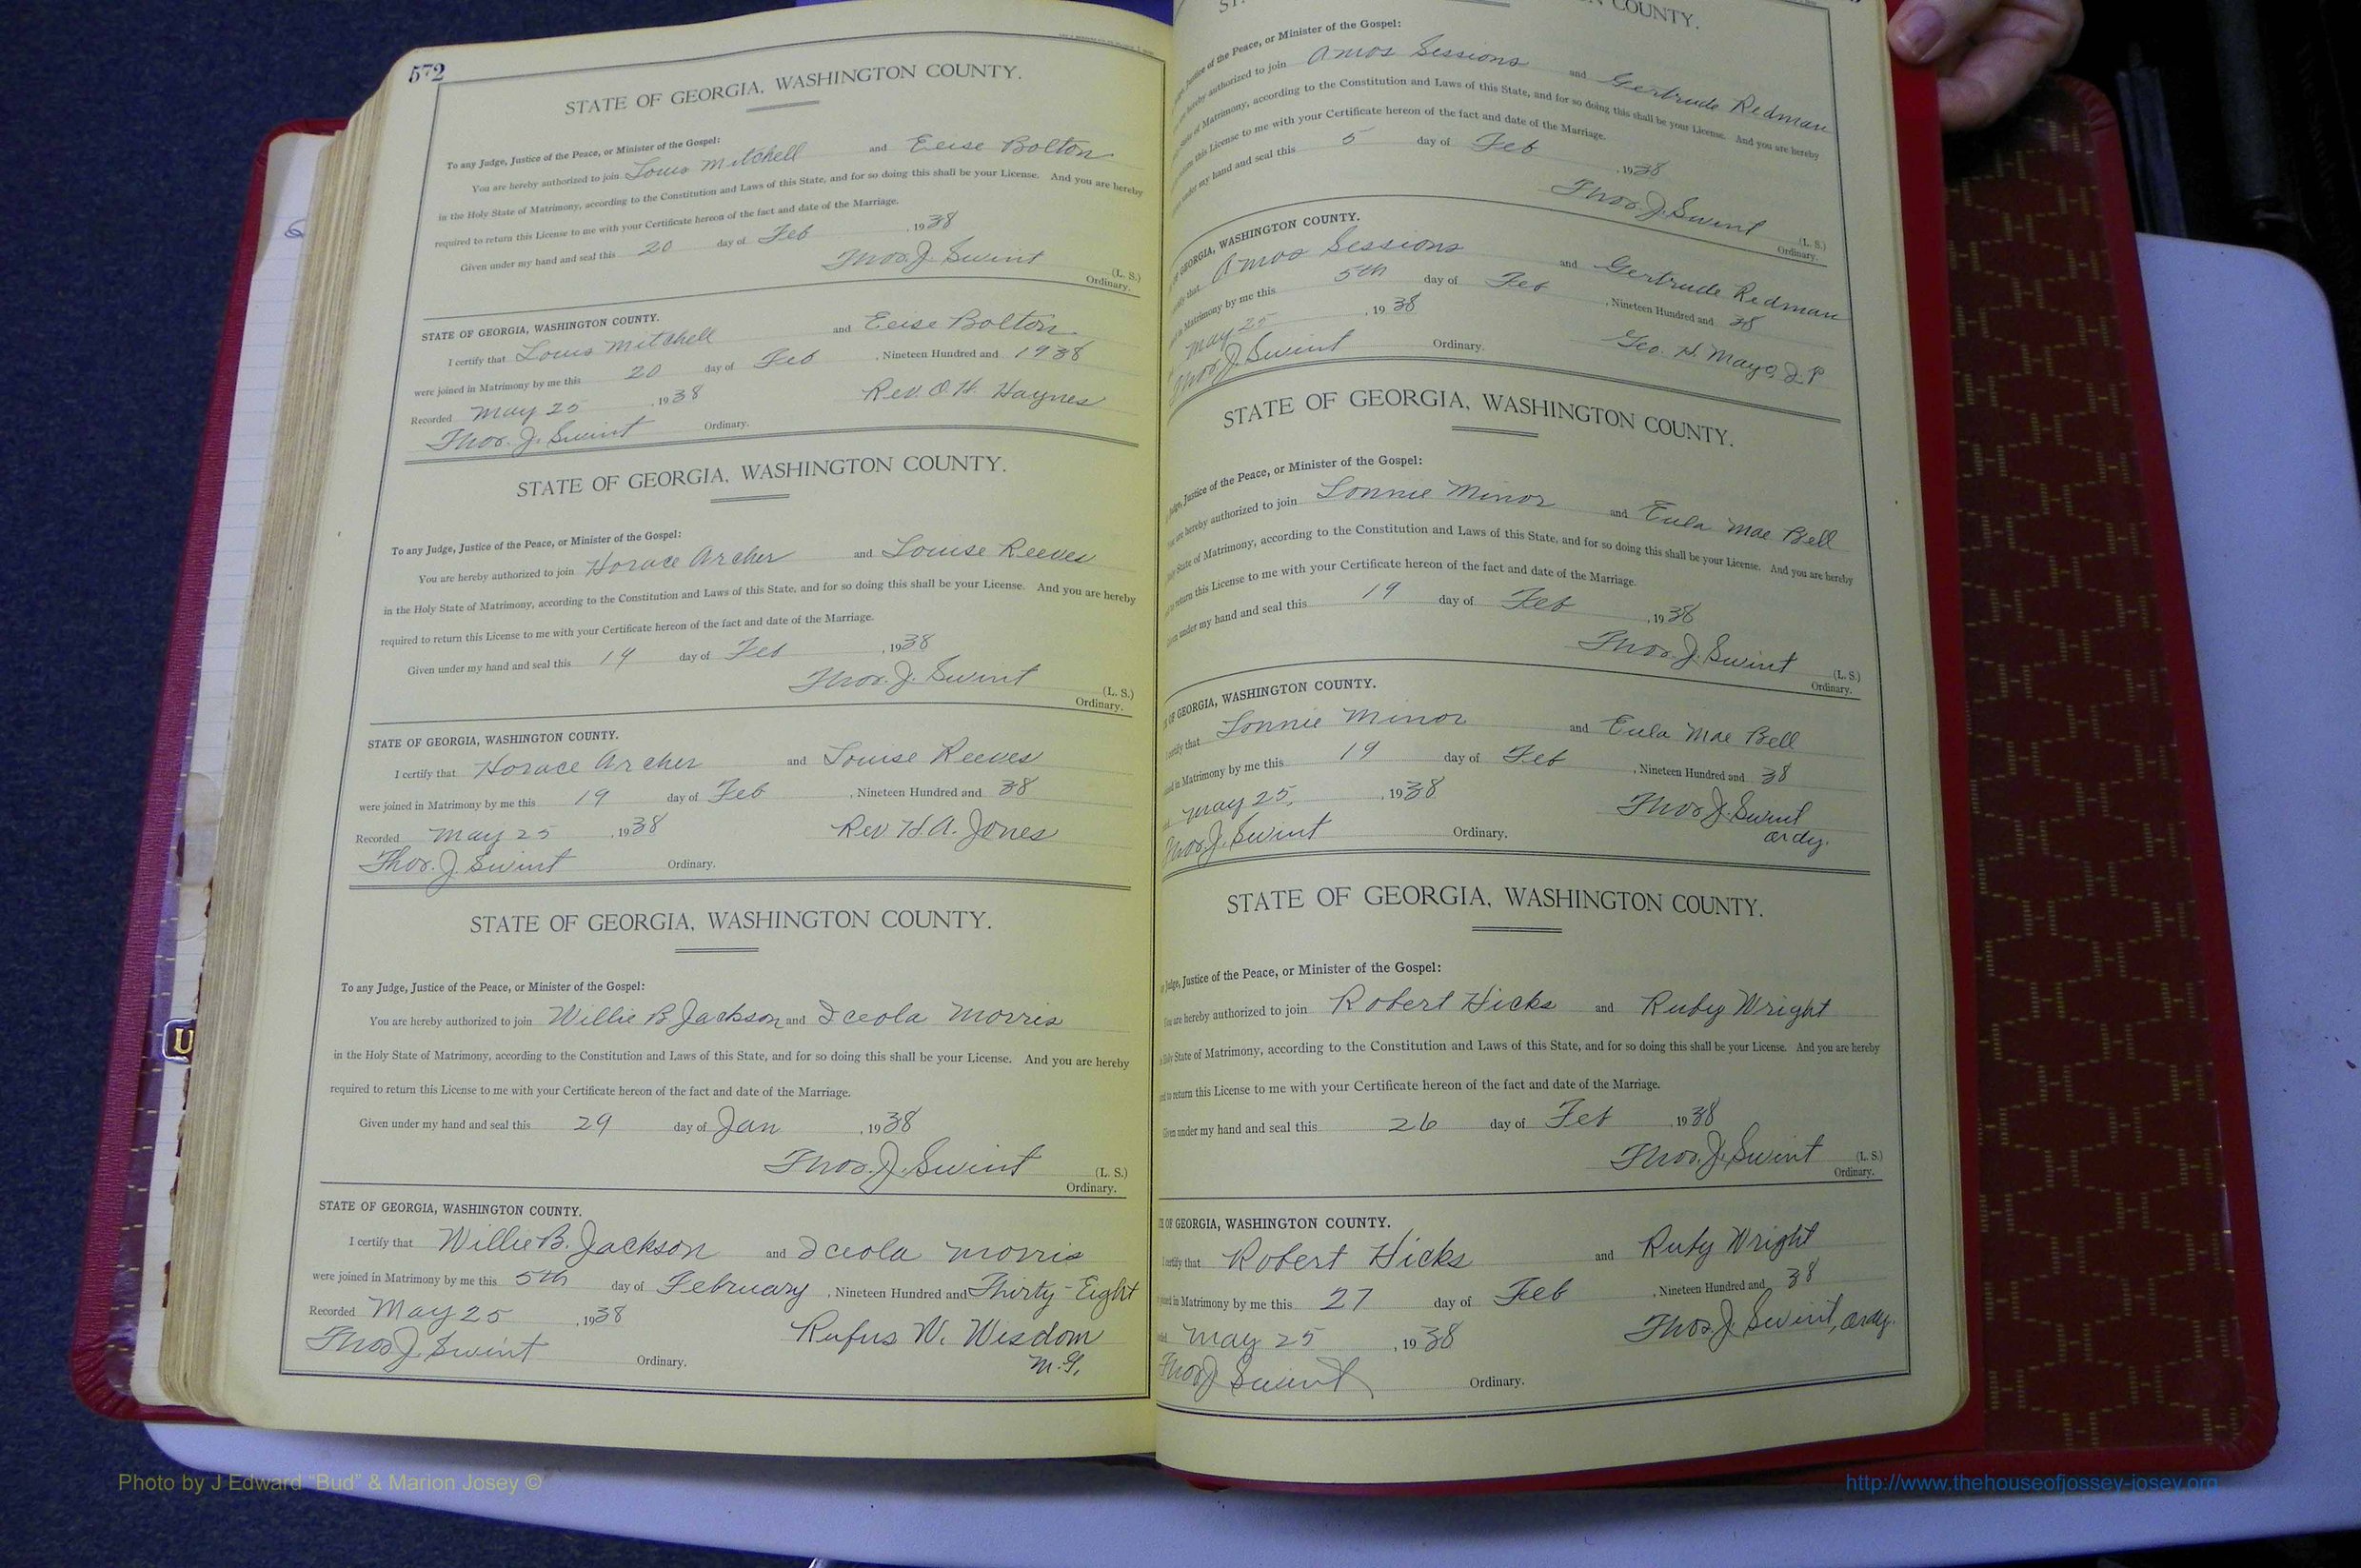 572
STATE OF GEORGIA, WASHINGTON COUNTY.
To any Judge, Justice of the Peace, or Minister of the Gospel:
You are hereby authorized to join Louis Mitchell and Elise Bolton
in the Holy State of Matrimony, according to the Constitution and Laws of this State, and for so doing this shall be your License. And you are hereby
required to return this License to me with your Certificate hereon of the fact and date of the Marriage.
Given under my hand and seal this 20 day of Feb , 1938
Thos. J. Swint (L. S.)
Ordinary.
STATE OF GEORGIA, WASHINGTON COUNTY.
I certify that Louis Mitchell and Elise Bolton
were joined in Matrimony by me this 20 day of Feb , Nineteen Hundred and 1938
Recorded May 25 , 1938 Rev. O. H. Haynes
Thos. J. Swint Ordinary.
STATE OF GEORGIA, WASHINGTON COUNTY.
To any Judge, Justice of the Peace, or Minister of the Gospel:
You are hereby authorized to join Horace Archer and Louise Reeves
in the Holy State of Matrimony, according to the Constitution and Laws of this State, and for so doing this shall be your License. And you are hereby
required to return this License to me with your Certificate hereon of the fact and date of the Marriage.
Given under my hand and seal this 19 day of Feb , 1938
Thos. J. Swint (L. S.)
Ordinary.
STATE OF GEORGIA, WASHINGTON COUNTY.
I certify that Horace Archer and Louise Reeves
were joined in Matrimony by me this 19 day of Feb , Nineteen Hundred and 38
Recorded May 25 , 1938 Rev H. A. Jones
Thos. J. Swint Ordinary.
STATE OF GEORGIA, WASHINGTON COUNTY.
To any Judge, Justice of the Peace, or Minister of the Gospel:
You are hereby authorized to join Willie B Jackson and Iceola Morris
in the Holy State of Matrimony, according to the Constitution and Laws of this State, and for so doing this shall be your License. And you are hereby
required to return this License to me with your Certificate hereon of the fact and date of the Marriage.
Given under my hand and seal this 29 day of Jan , 1938
Thos. J. Swint (L. S.)
Ordinary.
STATE OF GEORGIA, WASHINGTON COUNTY.
I certify that Willie B. Jackson and Iceola Morris
were joined in Matrimony by me this 5th day of February , Nineteen Hundred and Thirty-Eight
Recorded May 25 , 1938 Rufus W. Wisdom
Thos J. Swint Ordinary. M. G.
COUNTY.
of the Peace, or Minister of the Gospel:
hereby authorized to join Amos Sessions and Gertrude Redman
State of Matrimony, according to the Constitution and Laws of this State, and for so doing this shall be your License. And you are hereby
this License to me with your Certificate hereon of the fact and date of the Marriage.
under my hand and seal this 5 day of Feb , 1938
Thos. J. Swint (L. S.)
Ordinary.
GEORGIA, WASHINGTON COUNTY.
that Amos Sessions and Gertrude Redman
in Matrimony by me this 5th day of Feb , Nineteen Hundred and 38
May 25 , 1938 Geo. H. Mayo, J. P
Thos. J. Swint Ordinary.
STATE OF GEORGIA, WASHINGTON COUNTY.
Judge, Justice of the Peace, or Minister of the Gospel:
are hereby authorized to join Lonnie Minor and Eula Mae Bell
State of Matrimony, according to the Constitution and Laws of this State, and for so doing this shall be your License. And you are hereby
return this License to me with your Certificate hereon of the fact and date of the Marriage.
under my hand and seal this 19 day of Feb , 1938
Thos. J. Swint (L. S.)
Ordinary.
OF GEORGIA, WASHINGTON COUNTY.
certify that Lonnie Minor and Eula Mae Bell
in Matrimony by me this 19 day of Feb , Nineteen Hundred and 38
May 25, , 1938 Thos J. Swint
Thos. J. Swint Ordinary. ordy.
STATE OF GEORGIA, WASHINGTON COUNTY.
Judge, Justice of the Peace, or Minister of the Gospel:
You are hereby authorized to join Robert Hicks and Ruby Wright
Holy State of Matrimony, according to the Constitution and Laws of this State, and for so doing this shall be your License. And you are hereby
to return this License to me with your Certificate hereon of the fact and date of the Marriage.
Given under my hand and seal this 26 day of Feb , 1938
Thos. J. Swint (L. S.)
Ordinary.
OF GEORGIA, WASHINGTON COUNTY.
I certify that Robert Hicks and Ruby Wright
joined in Matrimony by me this 27 day of Feb , Nineteen Hundred and 38
May 25 , 1938 Thos J. Swint, ordy.
Thos J Swint Ordinary.
Photo by J Edward "Bud" & Marion Josey ©
http://www.thehouseofjossey-josey.org